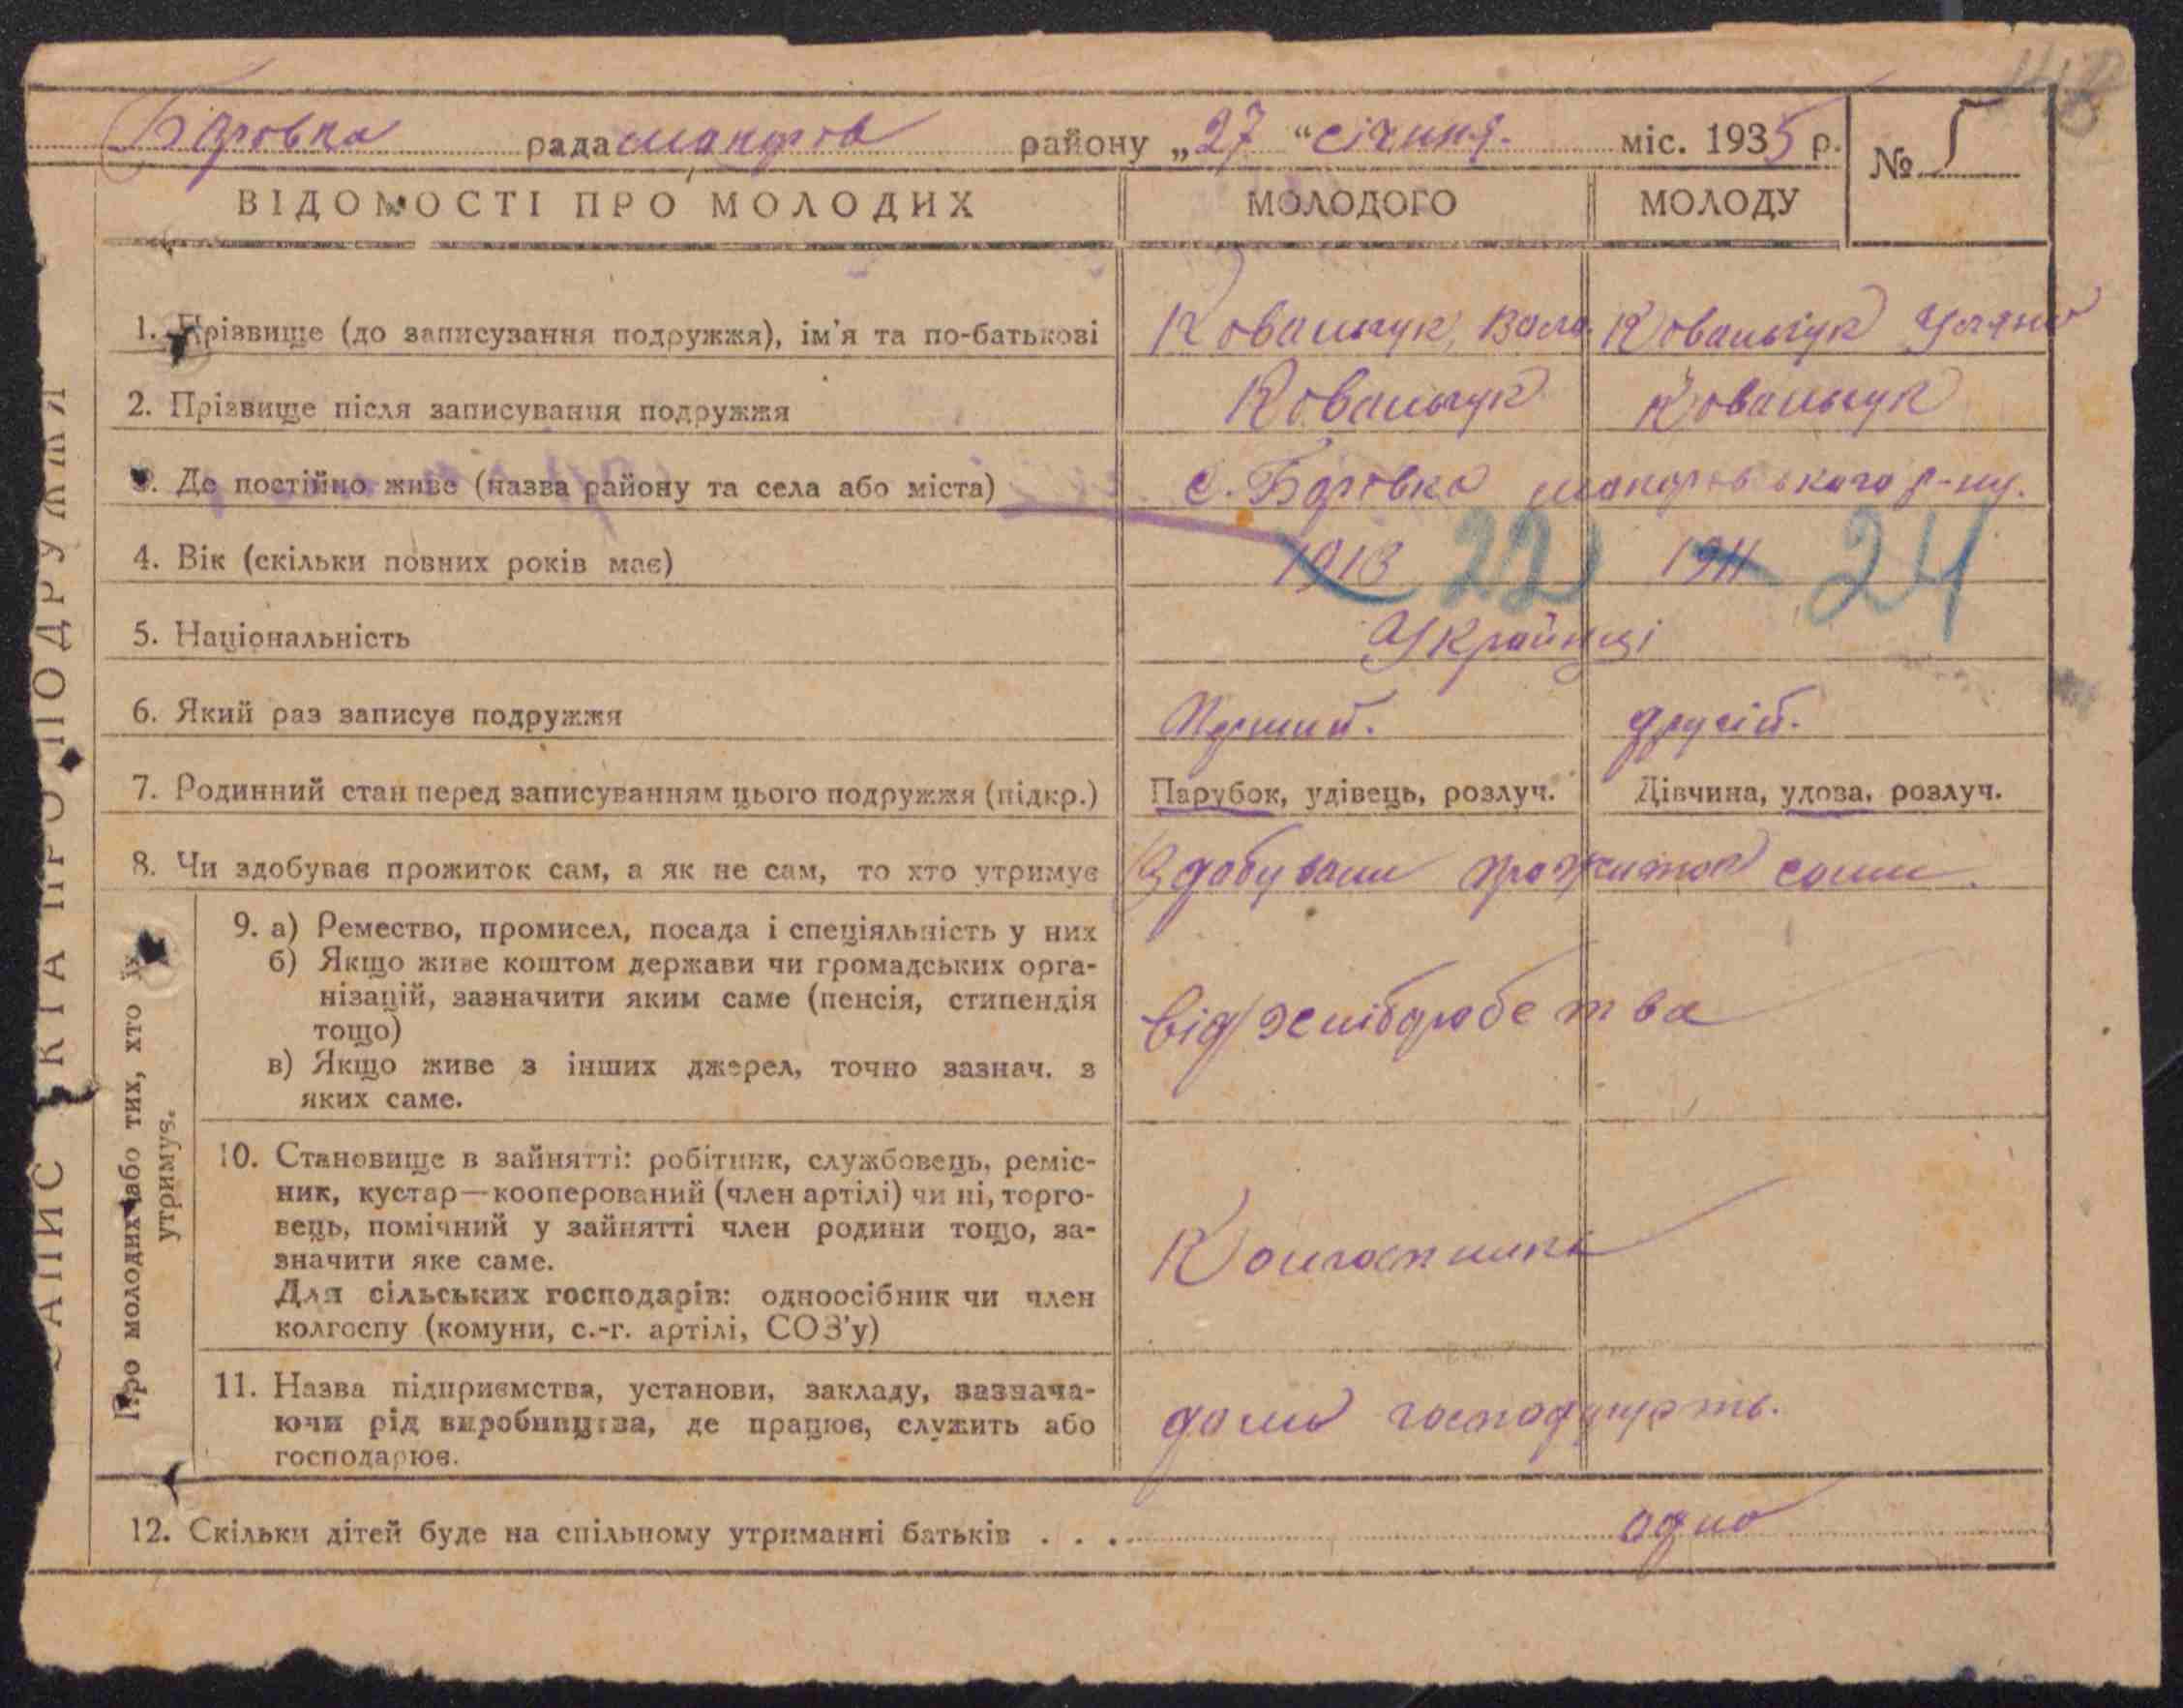 Боровка рада Макарів району „27 “ січння. міс. 1935 р.
№ 5
ВІДОМОСТІ ПРО МОЛОДИХ МОЛОДОГО МОЛОДУ
1. Прізвище (до записування подружжя), ім'я та по-батькові Ковальчук, Ковальчук Уляна
2. Прізвище після записування подружжя Ковальчук Ковальчук
3. Де постійно живе (назва району та села або міста) с. Боровка макаровського р-ну.
4. Вік (скільки повних років має) 1913 22 1911 24
5. Національність Українці
6. Який раз записує подружжя Перший. другій.
7. Родинний стан перед записуванням цього подружжя (підкр.) Парубок, удівець, розлуч. Дівчина, удова, розлуч.
8. Чи здобуває прожиток сам, а як не сам, то хто утримує Здобували прожиток сами.
9. а) Ремество, промисел, посада і спеціяльність у них
б) Якщо живе коштом держави чи громадських орга-
нізацій, зазначити яким саме (пенсія, стипендія
тощо)
в) Якщо живе з інших джерел, точно зазнач. з
яких саме.
від хліборобства
10. Становище в зайнятті: робітник, службовець, реміс-
ник, кустар—кооперований (член артілі) чи ні, торго-
вець, помічний у зайнятті член родини тощо, за-
значити яке саме.
Для сільських господарів: одноосібник чи член
колгоспу (комуни, с.-г. артілі, СОЗ'у)
11. Назва підприємства, установи, закладу, зазнача-
ючи рід виробництва, де працює, служить або
господарює.
12. Скільки дітей буде на спільному утриманні батьків . . . одно
Про молодих або тих, хто їх
утримує.
ЗАПИС АКТА ПРО ПОДРУЖЖЯ